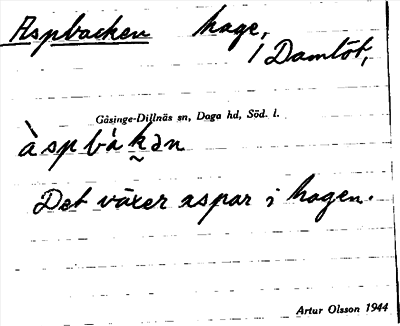 Aspbacken hage,
Damtöt,
Gåsinge-Dillnäs sn, Daga hd, Söd. l.
àspbàkən
Det växer aspar i hagen.
Artur Olsson 1944